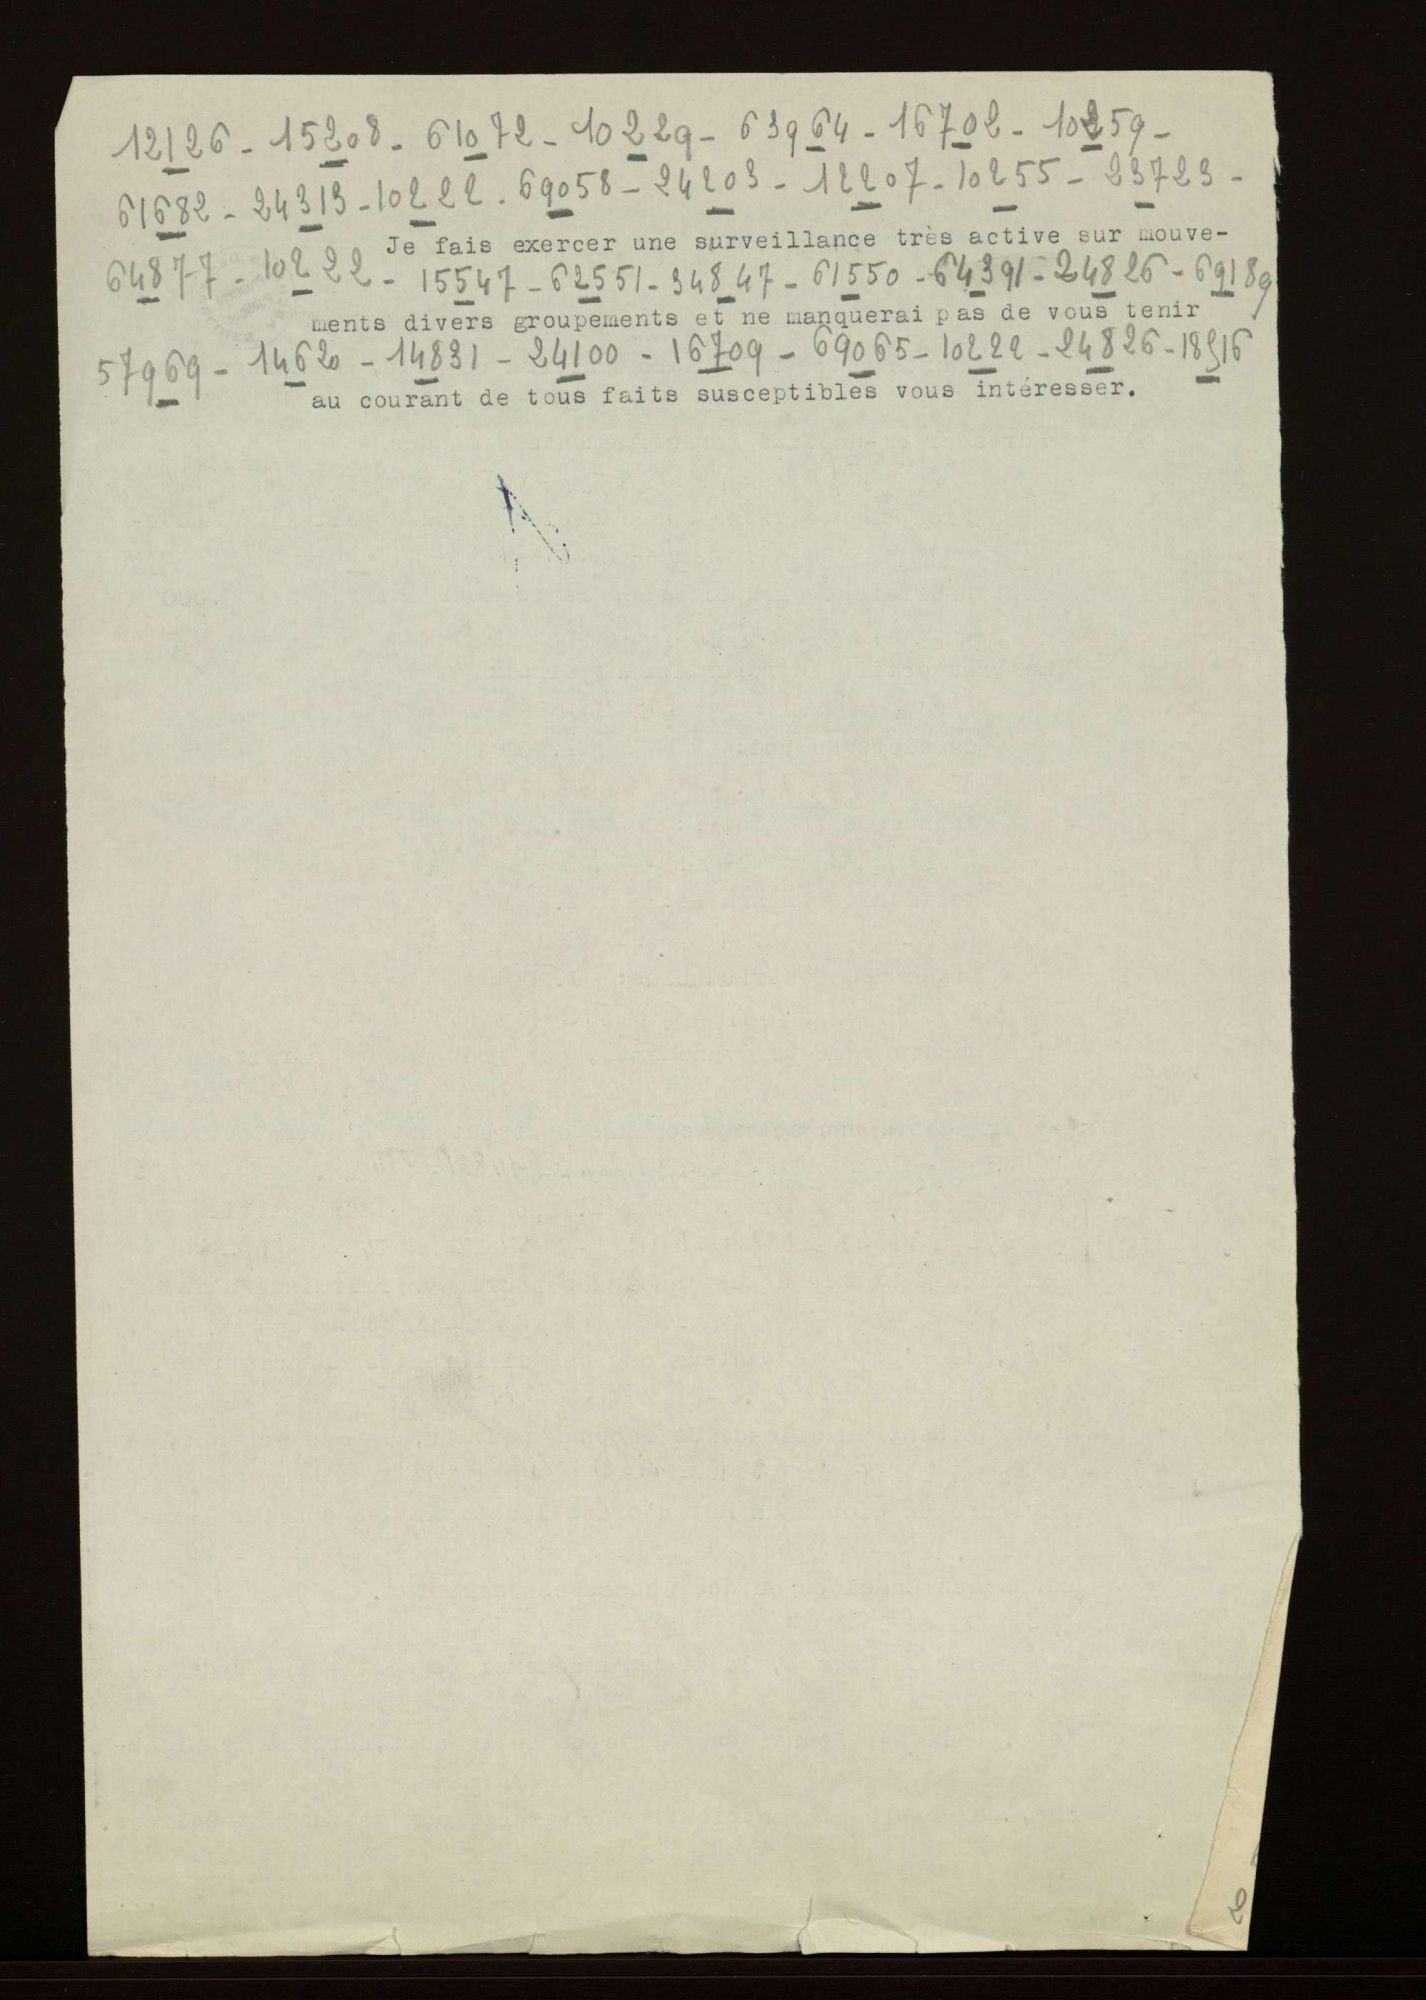 12126 - 15208 - 61072 - 10229 - 63964 - 16702 - 10259 -
61682 - 24313 - 10222 - 69058 - 24203 - 12207 - 10255 - 23723 -
Je fais exercer une surveillance très active sur mouve-
64877 - 10222 - 15547 - 62551 - 34847 - 61550 - 64391 - 24826 - 69189
ments divers groupements et ne manquerai pas de vous tenir
57969 - 14620 - 14831 - 24100 - 16709 - 69065 - 10222 - 24826 - 18516
au courant de tous faits susceptibles vous intéresser.